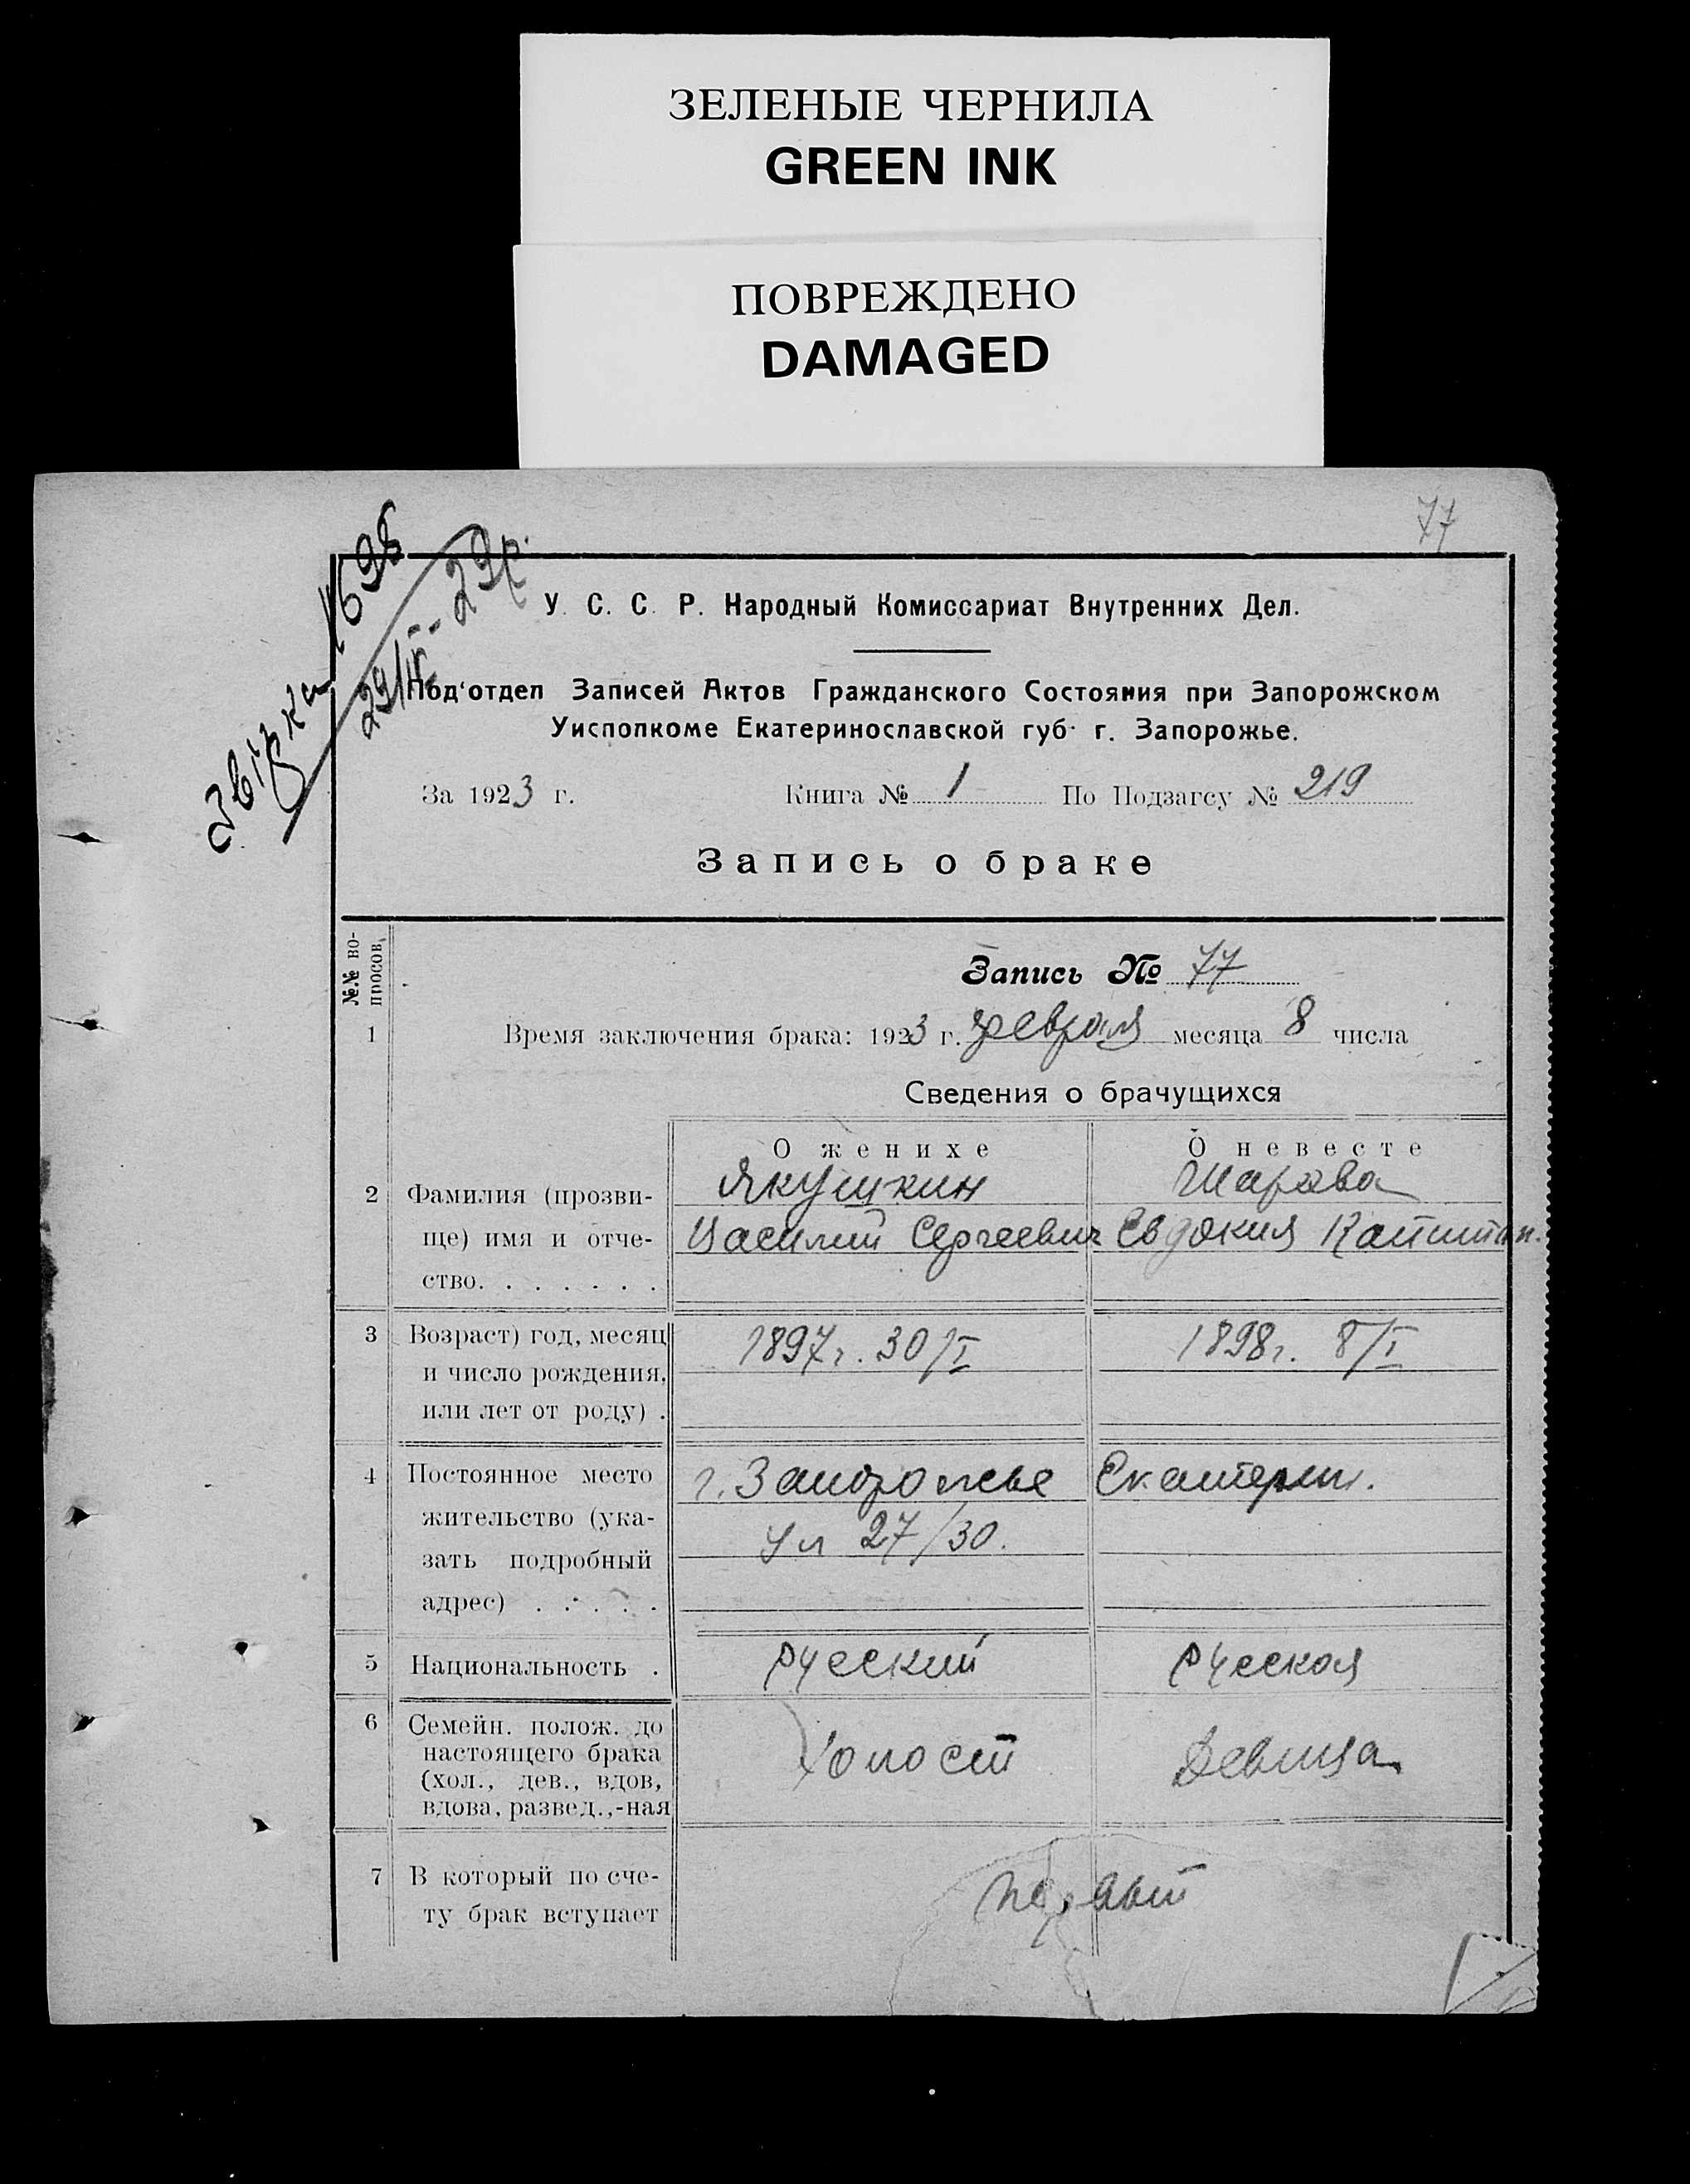 ЗЕЛЕНЫЕ ЧЕРНИЛА
GREEN INK
ПОВРЕЖДЕНО
DAMAGED
77
1698
29/IV - 29р.
У. С. С. Р. Народный Комиссариат Внутренних Дел.
Под'отдел Записей Актов Гражданского Состояния при Запорожском
Уисполкоме Екатеринославской губ. г. Запорожье.
За 1923 г. Книга № 1 По Подзагсу № 219
Запись о браке
№№ во-
просов.
Запись № 77
1 Время заключения брака: 1923 г. февраля месяца 8 числа
Сведения о брачущихся
О женихе О невесте
Якушкин Шарова
2 Фамилия (прозви-
ще) имя и отче- Василий Сергеевич Евдокия Капитон.
ство. . . . . . .
3 Возраст) год, месяц 1897г. 30/I 1898г. 8/I
и число рождения,
или лет от роду) .
4 Постоянное место г. Запорожье Екатерин.
жительство (ука- Ул 27/30.
зать подробный
адрес) . . . . .
5 Национальность . русский русская
6 Семейн. полож. до
настоящего брака Холост Девица
(хол., дев., вдов,
вдова, развед.,-ная
7 В который по сче- первый
ту брак вступает